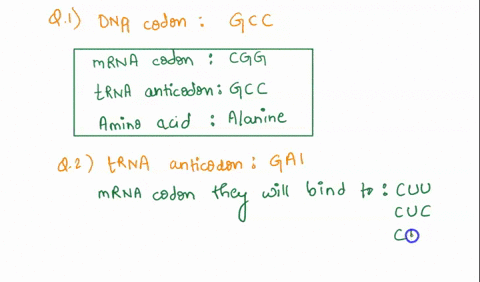 Q.1) DNA codon : GCC
mRNA codon : CGG
tRNA anticodon : GCC
Amino acid : Alanine
Q.2) tRNA anticodon : GAI
mRNA codon they will bind to : CUU
CUC
C